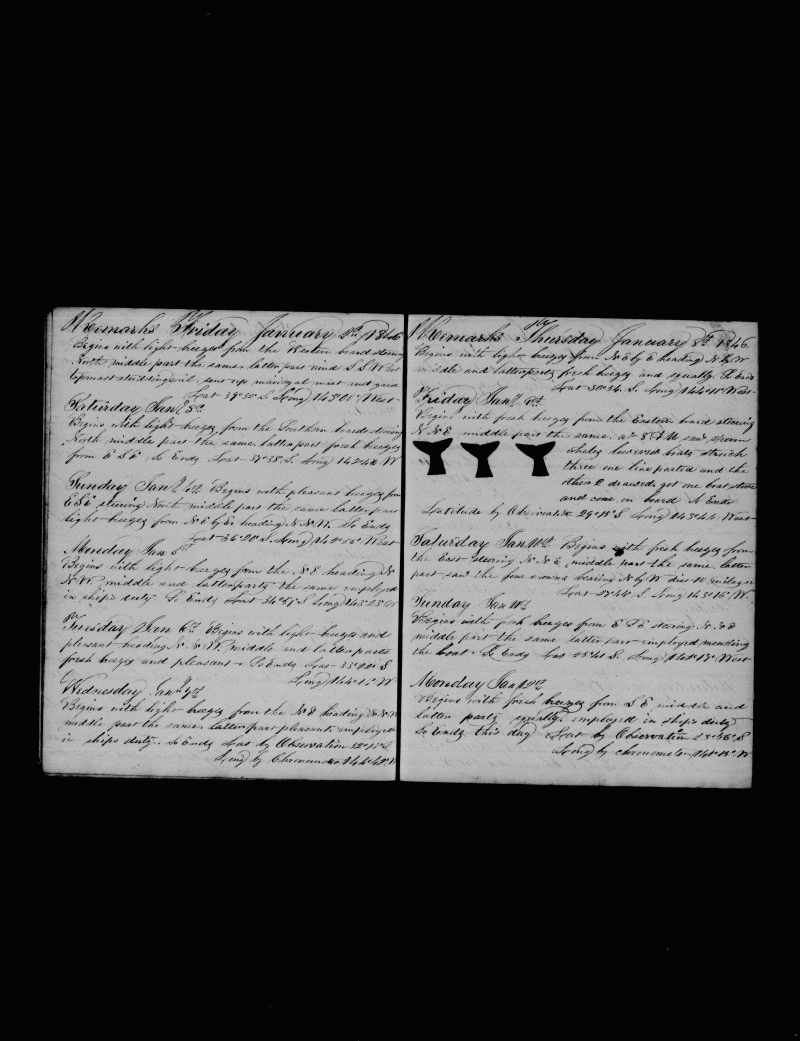 Remarks Friday January 2th 1846
Begins with light breezes from the Western board steering
North middle part the same latter part wind S S W set
topmast studdingsail sent up main mast and yard
Lat 39°30' S Long 143°01' West
Saturday Jan 3th
Begins with light breezes from the Southern board steering
North middle part the same latter part fresh breezes
from E S E So Ends Lat 37°38' S. Long 142°42' W
Sunday Jan 4th Begins with pleasant breezes from
E S E steering North middle part the same latter part
light breezes from N E by E heading N. N W. So Ends
Lat 36°20' S. Long 142°56' West
Monday Jan 5th
Begins with light breezes from the N E heading N
N W. middle and latter parts the same employed
in ship's duty So Ends Lat 34°59' S Long 143°23' W
Tuesday Jan 6th Begins with light breezes and
pleasant heading N. N W. middle and latter parts
fresh breezes and pleasant So Ends Lat 33°20' S
Long 144°12' W
Wednesday Jan 7th
Begins with light breezes from the N E heading N N W
middle part the same. latter part pleasant employed
in ships duty. So Ends Lat by Observation 32°12' S
Long by Chronometer 144°42' W
Remarks Thursday January 8th 1846
Begins with light breezes from N E by E heading N by W
middle and latter parts fresh breezes and squally So Ends
Lat 30°34' S. Long 144°11' West
Friday Jan 9th
Begins with fresh breezes from the Eastern board steering
N N E middle part the same. at 8 A M saw Sperm
whales lowered boats struck
three one line parted and the
other 2 drawed got one boat stove
and come on board So Ends
Latitude by Observation 29°13' S Long 143°44' West
Saturday Jan 10th Begins with fresh breezes from
the East steering N. N E. middle part the same, latter
part saw the four crowns bearing N by W dis 10 miles
Lat 27°44' S. Long 143°15' W.
Sunday Jan 11th
Begins with fresh breezes from E S E steering N. N E
middle part the same latter part employed mending
the boat. So Ends Lat 25°41' S. Long 141°17' West
Monday Jan 12th
Begins with fresh breezes from S E middle and
latter parts squally. employed in ship's duty
So Ends this day Lat by Observation 23°46' S
Long by chronometer 140°15' W